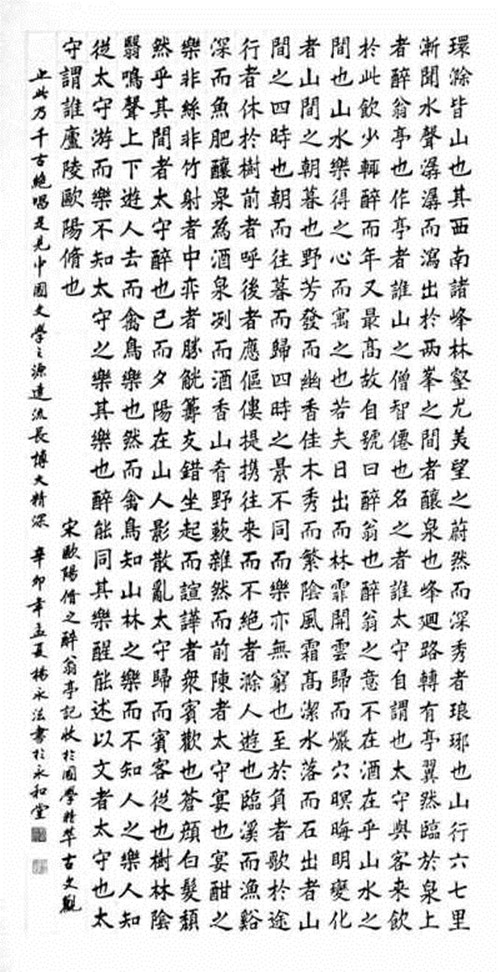 環滁皆山也其西南諸峰林壑尤美望之蔚然而深秀者琅琊也山行六七里
漸聞水聲潺潺而瀉出於兩峯之間者釀泉也峰廻路轉有亭翼然臨於泉上
者醉翁亭也作亭者誰山之僧智僊也名之者誰太守自謂也太守與客来飲
於此飲少輒醉而年又最高故自號曰醉翁也醉翁之意不在酒在乎山水之
間也山水樂得之心而寓之也若夫日出而林霏開雲歸而巖穴暝晦明變化
者山間之朝暮也野芳發而幽香佳木秀而繁陰風霜高潔水落而石出者山
間之四時也朝而往暮而歸四時之景不同而樂亦無窮也至於負者歌於途
行者休於樹前者呼後者應傴僂提携往来而不絶者滁人遊也臨溪而漁谿
深而魚肥釀泉為酒泉冽而酒香山肴野蔌雜然而前陳者太守宴也宴酣之
樂非絲非竹射者中弈者勝觥籌交錯坐起而諠譁者衆賓歡也蒼顏白髮頹
然乎其間者太守醉也已而夕陽在山人影散亂太守歸而賓客從也樹林陰
翳鳴聲上下遊人去而禽鳥樂也然而禽鳥知山林之樂而不知人之樂人知
從太守游而樂不知太守之樂其樂也醉能同其樂醒能述以文者太守也太
守謂誰廬陵歐陽脩也 宋歐陽脩之醉翁亭記收於國學精萃古文觀
止此乃千古絶唱足見中國文學之源遠流長博大精深 辛卯年孟夏楊永法書於永和堂